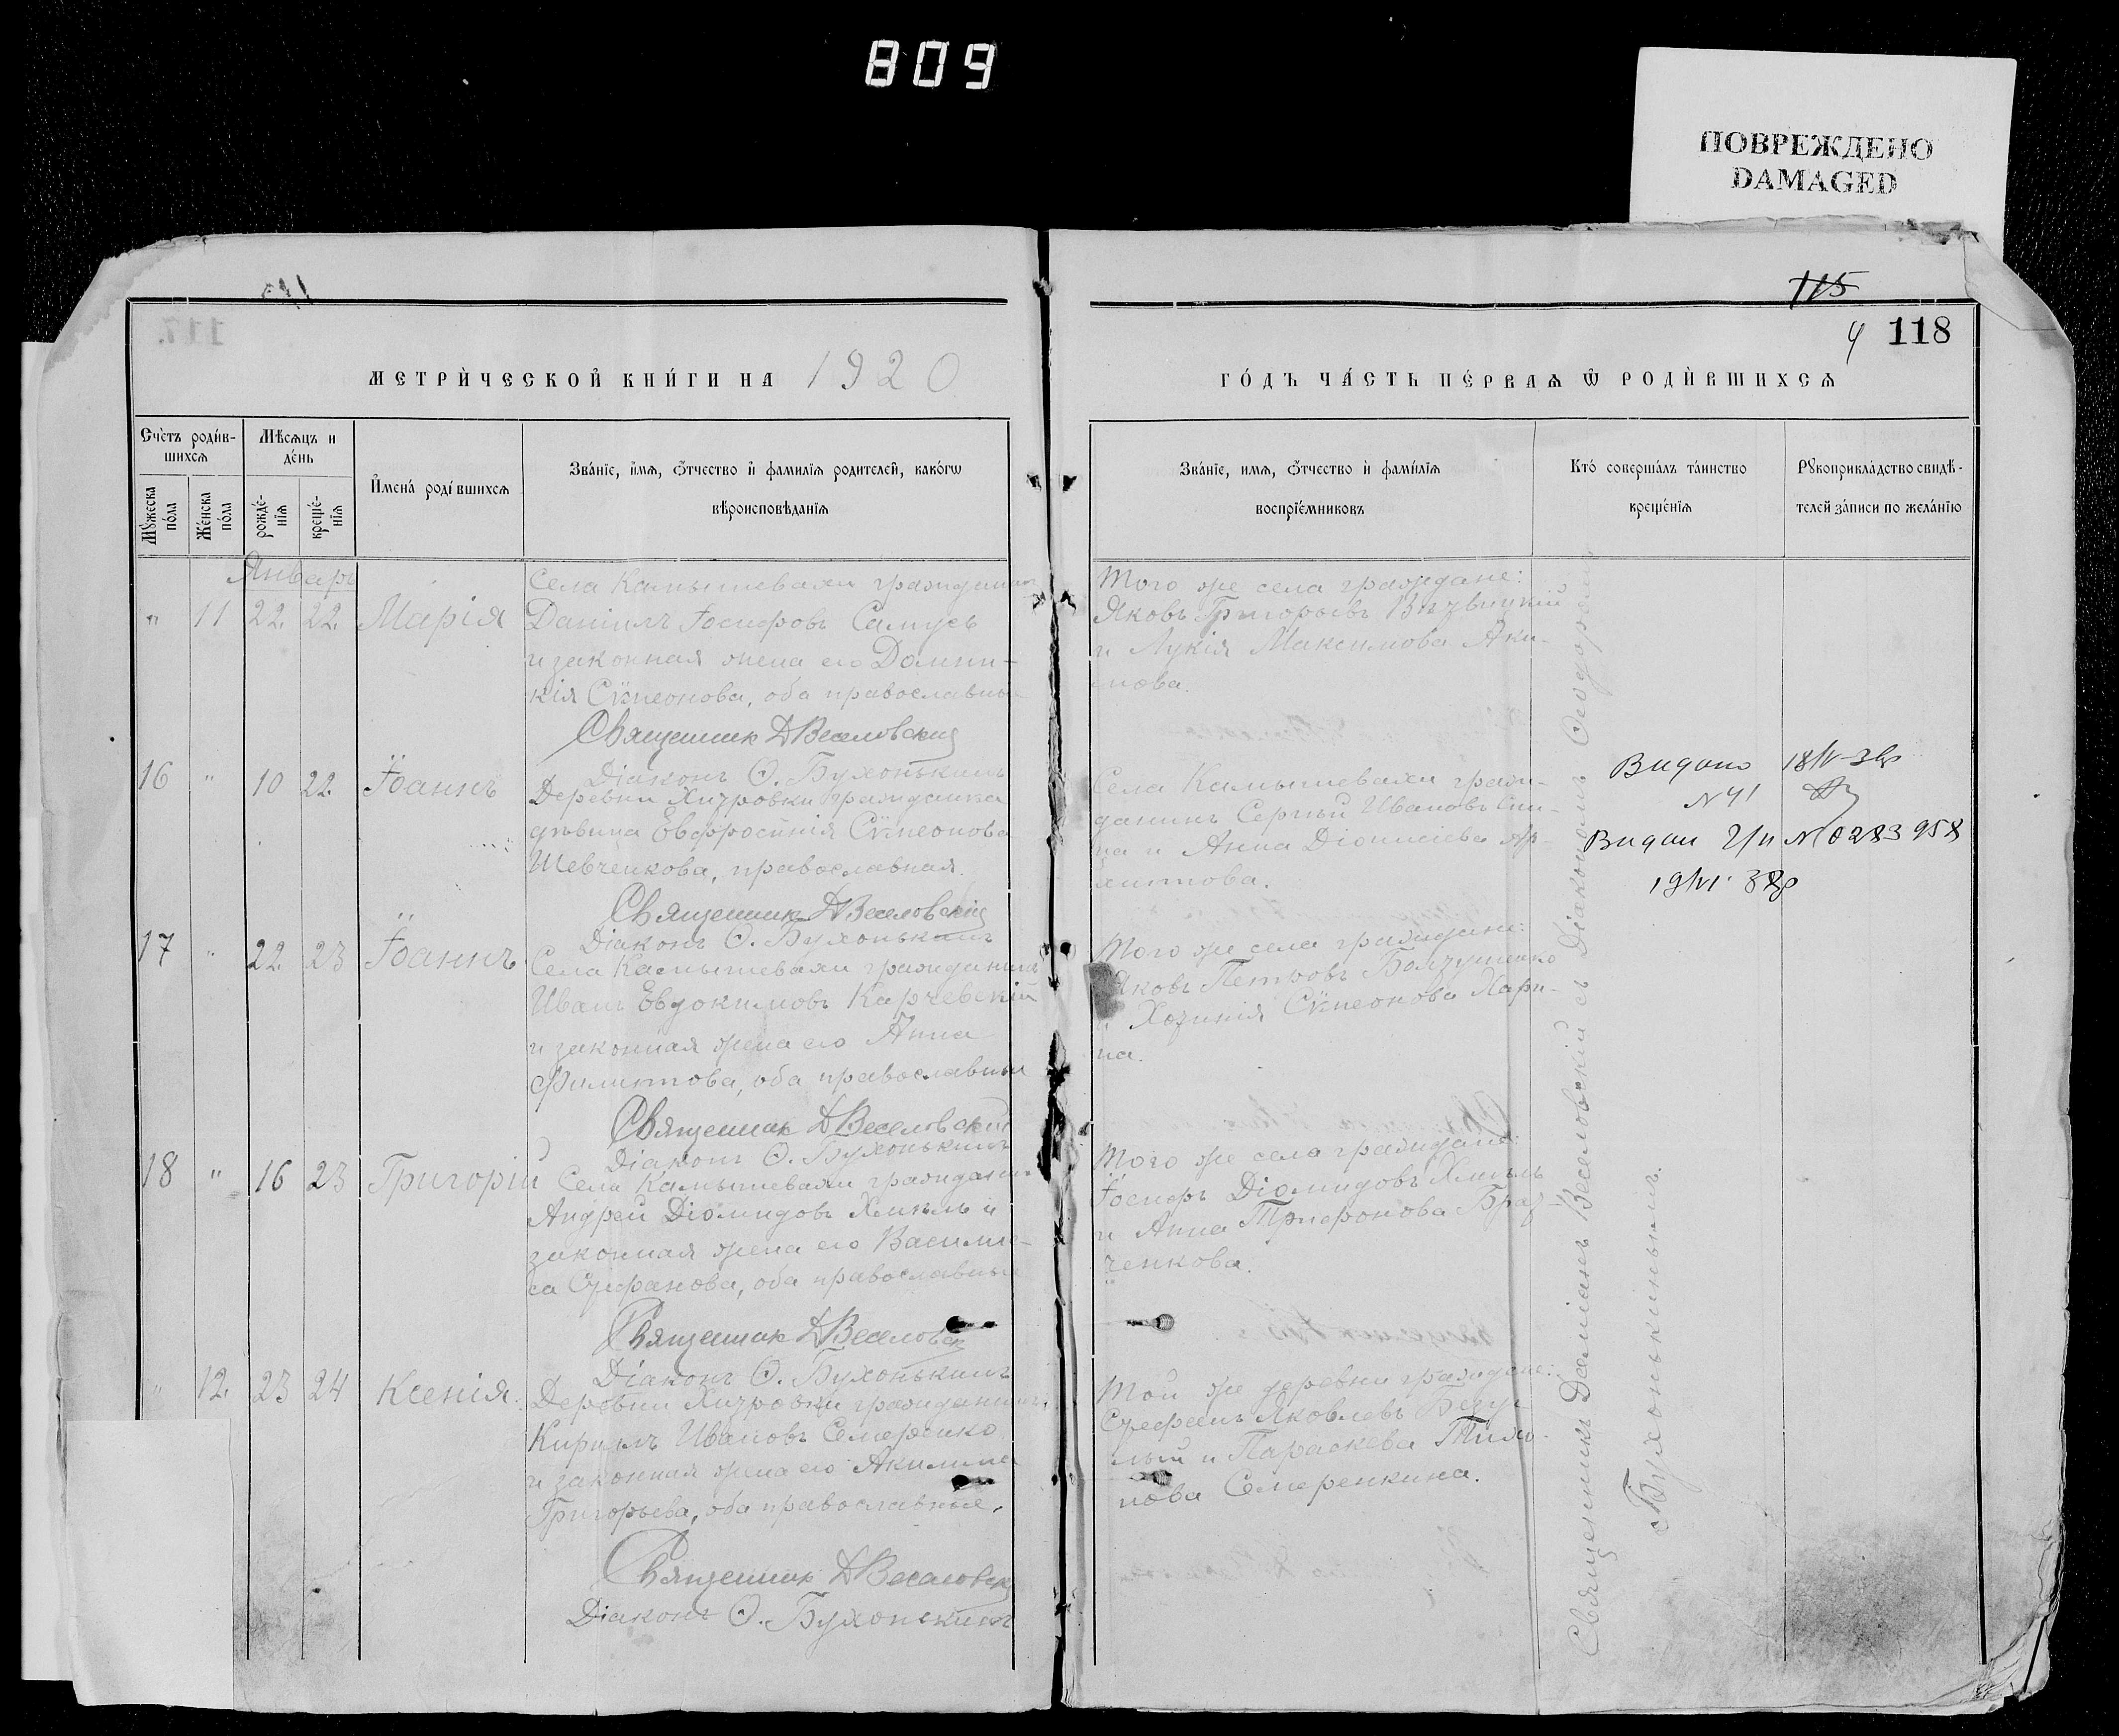 809
ПОВРЕЖДЕНО
DAMAGED
115
118
МЕТРИ́ЧЕСКОЙ КНИ́ГИ НА 1920
ГО́ДЪ ЧА́СТЬ ПЕ́РВАЯ Ѡ҆ РОДИ́ВШИХСЯ
Сче́тъ роди́в-
шихся
Мѣ́сяцъ и
де́нь
Мꙋ́жеска по́ла
Же́нска по́ла
рожде́-
нїя
креще́-
нїя
И҆мена̀ роди́вшихся
Зва́нїе, и҆́мя, ѻ҆́тчество и҆ фами́лїя роди́телей, како́гѡ
вѣроисповѣ́данїя
Зва́нїе, и҆́мя, ѻ҆́тчество и҆ фами́лїя
воспрїе́мниковъ
Кто̀ соверша́лъ та́инство
креще́нїя
Рꙋкоприкла́дство свидѣ́-
телей за́писи по жела́нїю
Январь
" 11 22 22 Марія
Села Камышевахи гражданинъ
Даніилъ Іосифовъ Самусь
и законная жена его Домни-
кія Сѵмеонова, оба православные
Священник Д Веселовский
Діаконъ Ѳ. Бухонькинъ
Того же села граждане:
Яковъ Григорьевъ
и Лукія Максимова Аки-
мова.
16 " 10 22 Іоаннъ
Деревни Хитровки гражданка
дѣвица Евфросинія Сѵмеонова
Шевченкова, православная.
Священник Д Веселовский
Діаконъ Ѳ. Бухонькинъ
Села Камышевахи граж-
данинъ Сергѣй Ивановъ
и Анна Діонисіева
Видано
N 41
Видан
N 0283958
17 " 22 23 Іоаннъ
Села Камышевахи гражданинъ
Иванъ Евдокимовъ Карчевскій
и законная жена его Анна
Филиппова, оба православные
Священник Д Веселовский
Діаконъ Ѳ. Бухонькинъ
Того же села граждане:
Яковъ Петровъ
Сѵмеонова Лари-
на.
18 " 16 23 Григорій
Села Камышевахи гражданинъ
Андрей Діомидовъ Хмѣль и
законная жена его Васили-
са Стефанова, оба православные
Священник Д Веселовск
Діаконъ Ѳ. Бухонькинъ
Того же села граждане:
Іосифъ Діомидовъ Хмѣль
и Анна Трифонова
ченкова.
" 12. 23 24 Ксенія.
Деревни Хитровки гражданинъ
Кирилъ Ивановъ Семеренко
и законная жена его Акилина
Григорьева, оба православные.
Священник Д Веселовск
Діаконъ Ѳ. Бухонькинъ
Той же деревни граждане:
Стефанъ Яковлевъ Безуг-
лый и Параскева Тимо-
нова Семеренкина.
Священникъ Даміанъ Веселовскій съ Діакономъ Ѳеодоромъ
Бухонькинымъ.